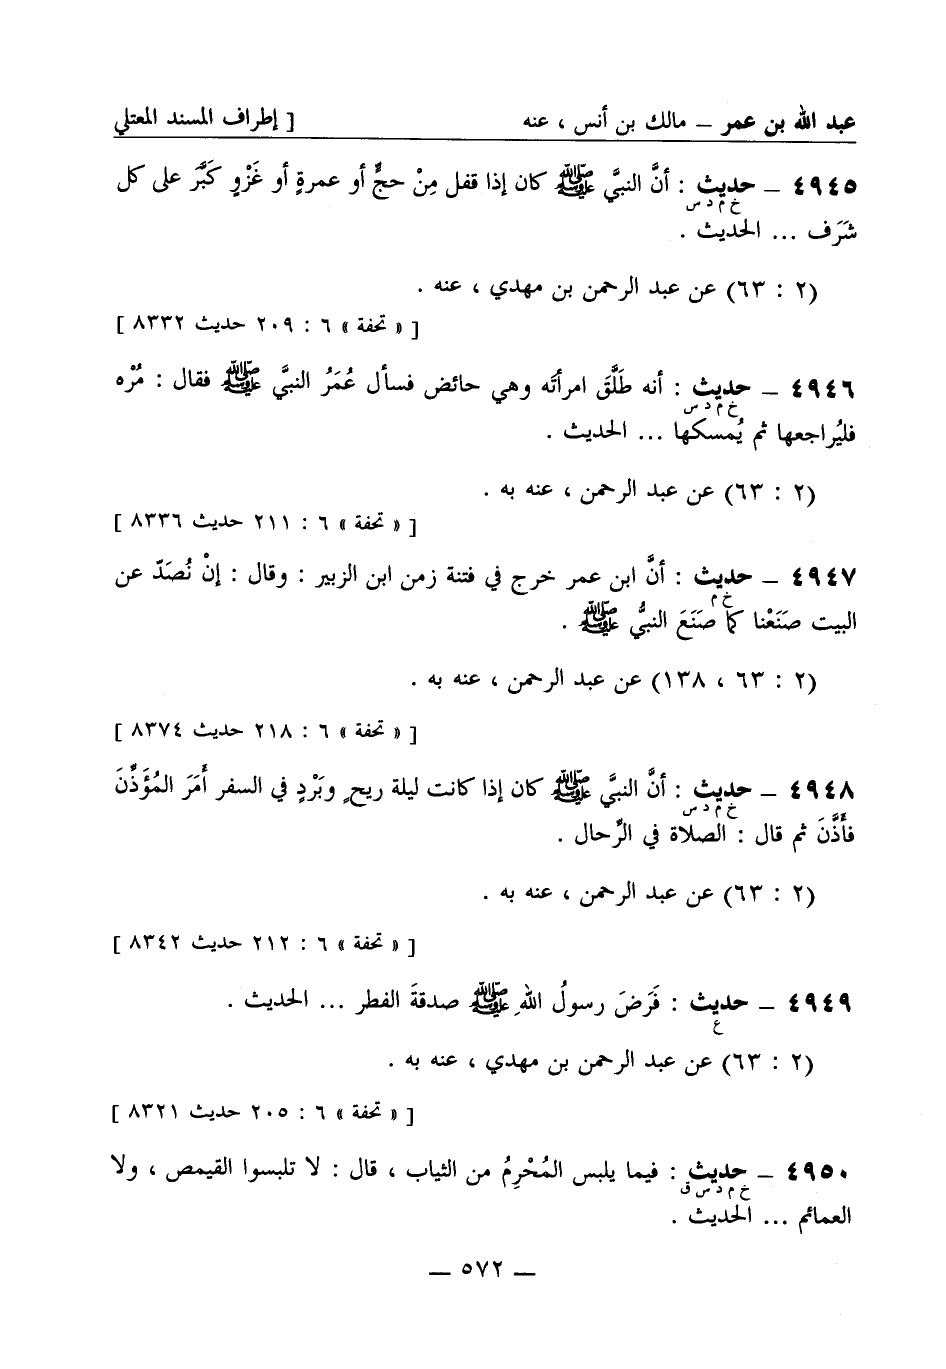 عبد الله بن عمر – مالك بن أنس ، عنه [ إطراف المسند المعتلي
٤٩٤٥ – حديث : أنَّ النبيَّ ﷺ كان إذا قفل مِنْ حجٍّ أو عمرةٍ أو غَزْوٍ كَبَّر على كل
خ م د س
شَرَف ... الحديث .
(٢ : ٦٣) عن عبد الرحمن بن مهدي ، عنه .
[ « تحفة » ٦ : ٢٠٩ حديث ٨٣٣٢ ]
٤٩٤٦ – حديث : أنه طَلَّقَ امرأتَه وهي حائض فسأل عُمَرُ النبيَّ ﷺ فقال : مُرْه
خ م د س
فليُراجعها ثم يُمسكها ... الحديث .
(٢ : ٦٣) عن عبد الرحمن ، عنه به .
[ « تحفة » ٦ : ٢١١ حديث ٨٣٣٦ ]
٤٩٤٧ – حديث : أنَّ ابن عمر خرج في فتنة زمن ابن الزبير : وقال : إنْ نُصَدّ عن
خ م
البيت صَنَعْنا كما صَنَعَ النبيُّ ﷺ .
(٢ : ٦٣ ، ١٣٨) عن عبد الرحمن ، عنه به .
[ « تحفة » ٦ : ٢١٨ حديث ٨٣٧٤ ]
٤٩٤٨ – حديث : أنَّ النبيَّ ﷺ كان إذا كانت ليلة ريحٍ وبَرْدٍ في السفر أَمَرَ المُؤَذِّنَ
خ م د س
فأَذَّنَ ثم قال : الصلاة في الرِّحال .
(٢ : ٦٣) عن عبد الرحمن ، عنه به .
[ « تحفة » ٦ : ٢١٢ حديث ٨٣٤٢ ]
٤٩٤٩ – حديث : فَرَضَ رسولُ اللهِ ﷺ صدقةَ الفطر ... الحديث .
ع
(٢ : ٦٣) عن عبد الرحمن بن مهدي ، عنه به .
[ « تحفة » ٦ : ٢٠٥ حديث ٨٣٢١ ]
٤٩٥٠ – حديث : فيما يلبس المُحْرِمُ من الثياب ، قال : لا تلبسوا القيمص ، ولا
خ م د س ق
العمائم ... الحديث .
– ٥٧٢ –